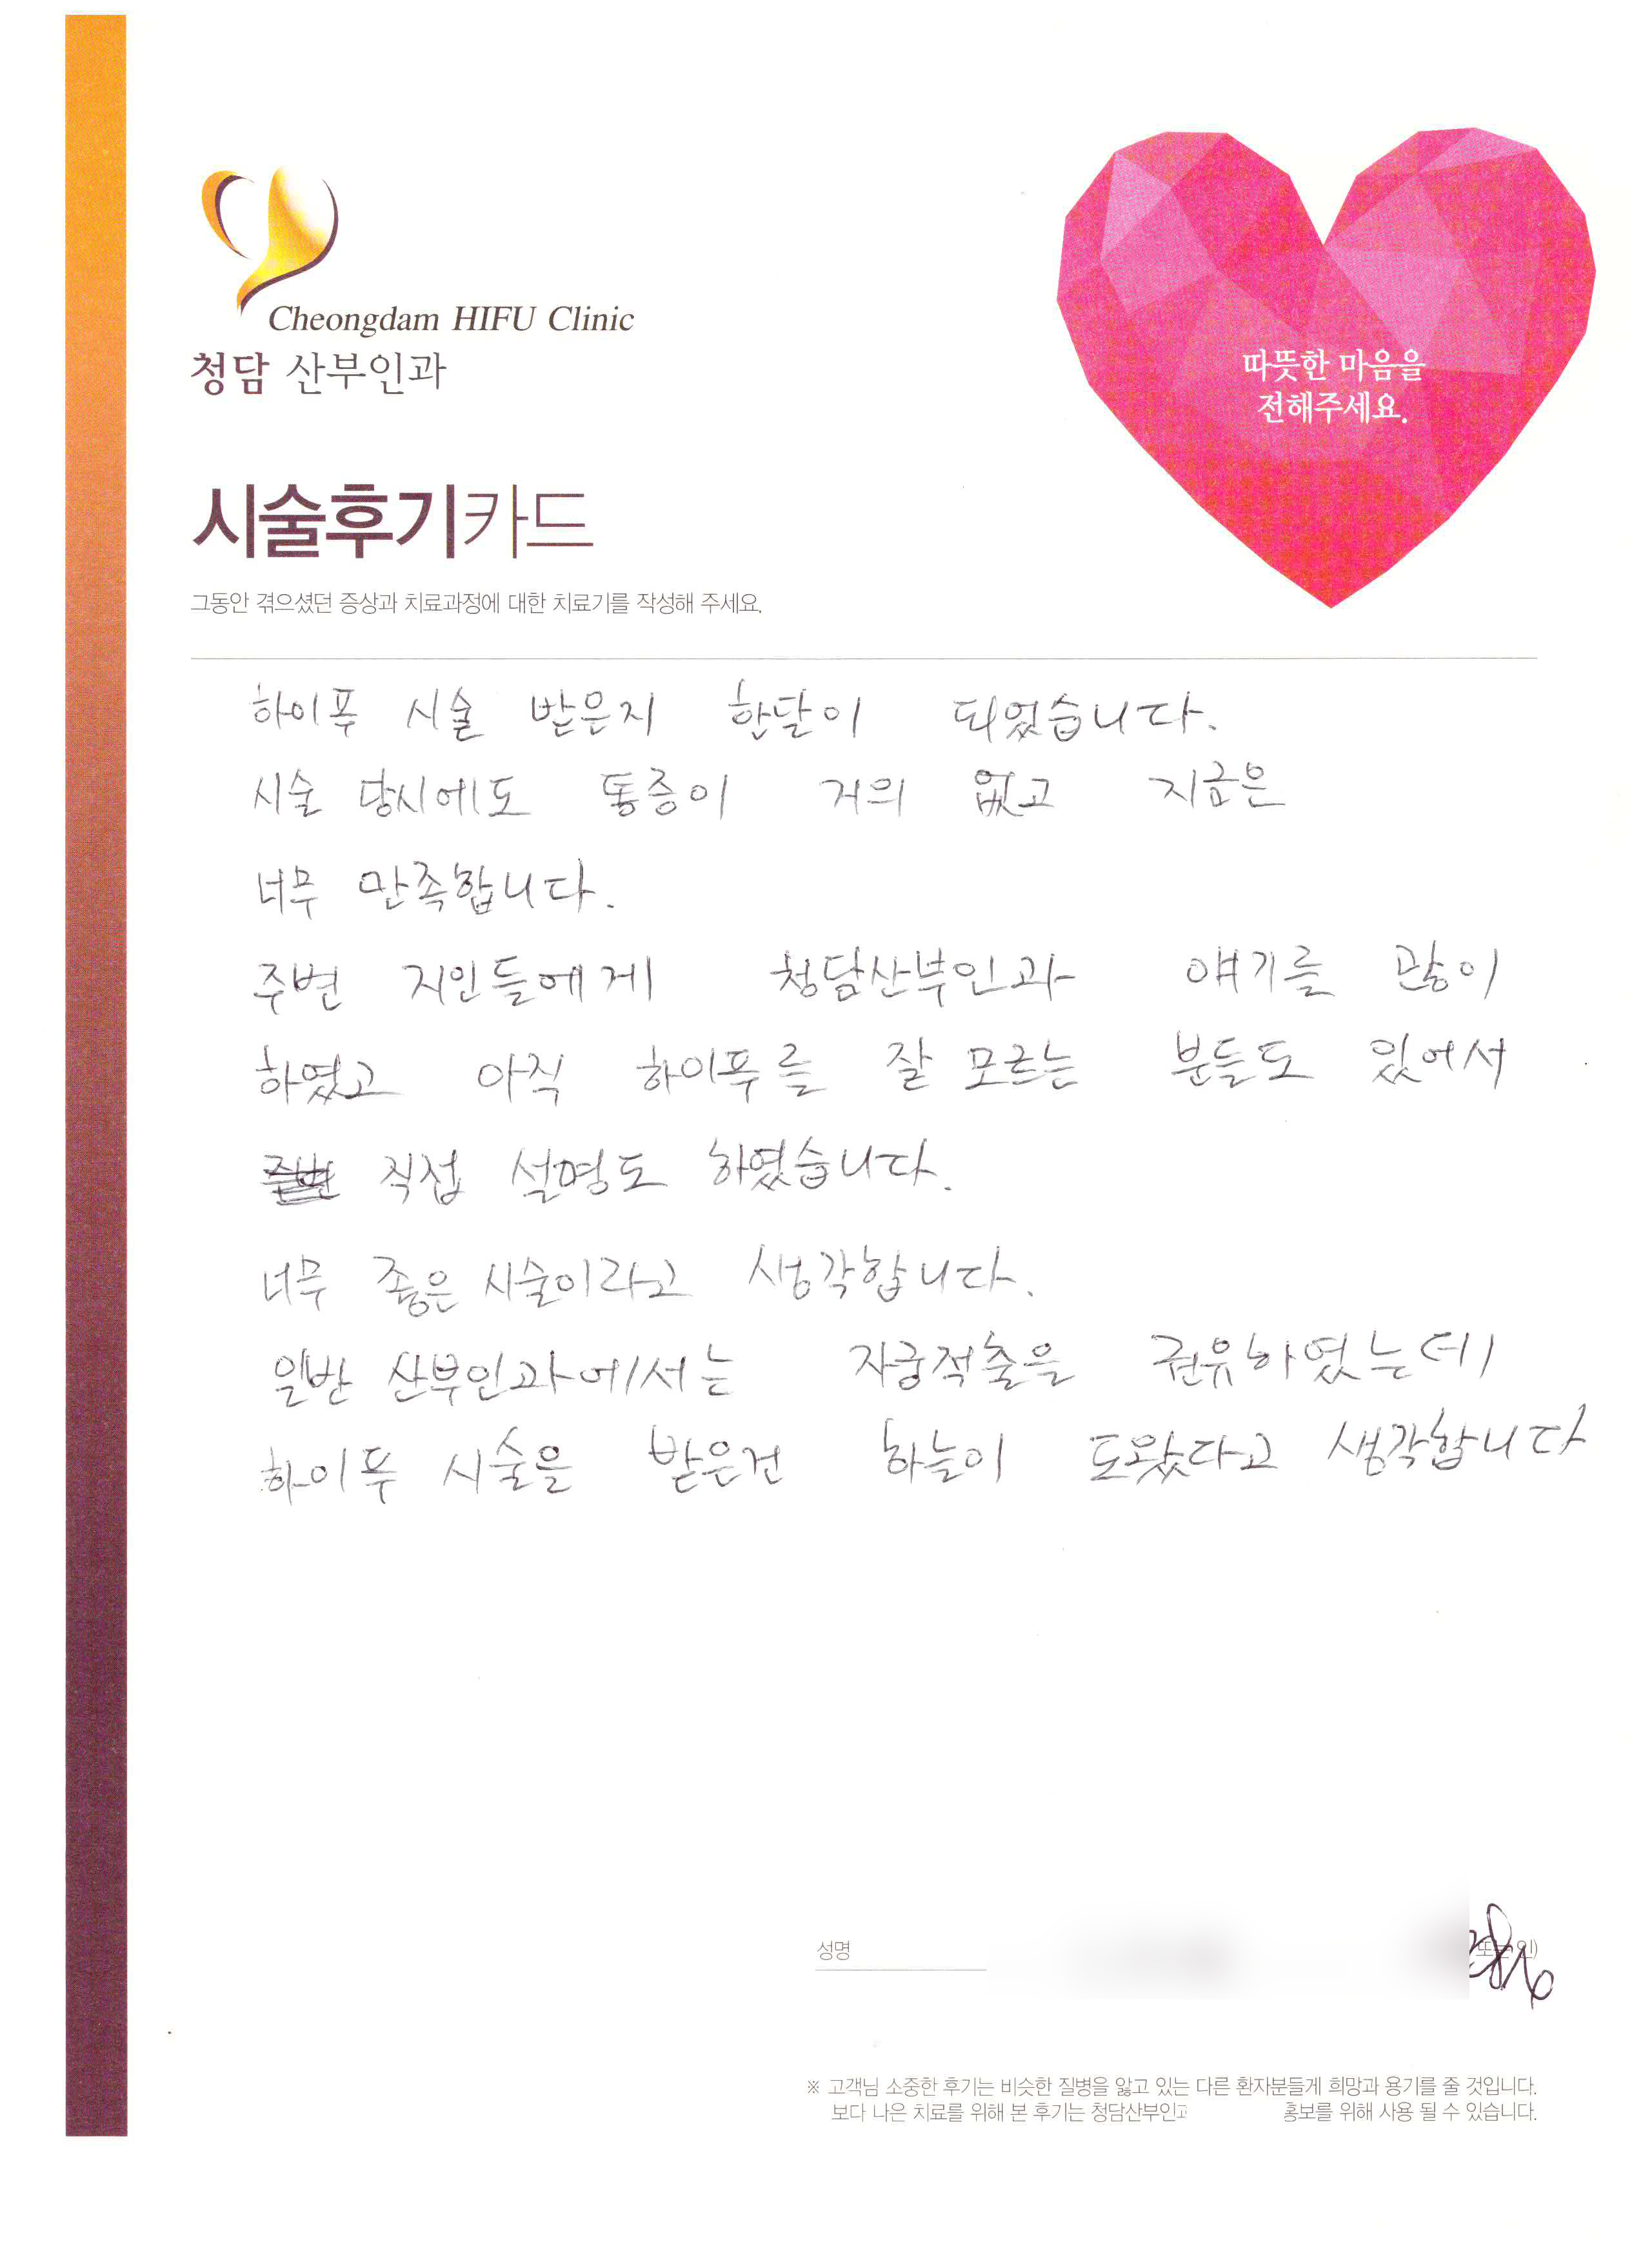 Cheongdam HIFU Clinic
청담 산부인과
따뜻한 마음을
전해주세요.
시술후기카드
그동안 겪으셨던 증상과 치료과정에 대한 치료기를 작성해 주세요.
하이푸 시술 받은지 한달이 되었습니다.
시술 당시에도 통증이 거의 없고 지금은
너무 만족합니다.
주변 지인들에게 청담산부인과 얘기를 많이
하였고 아직 하이푸를 잘 모르는 분들도 있어서
직접 설명도 하였습니다.
너무 좋은 시술이라고 생각합니다.
일반 산부인과에서는 자궁적출을 권유하였는데
하이푸 시술을 받은건 하늘이 도왔다고 생각합니다
성명 또는 인)
※ 고객님 소중한 후기는 비슷한 질병을 앓고 있는 다른 환자분들게 희망과 용기를 줄 것입니다.
보다 나은 치료를 위해 본 후기는 청담산부인과 홍보를 위해 사용 될 수 있습니다.